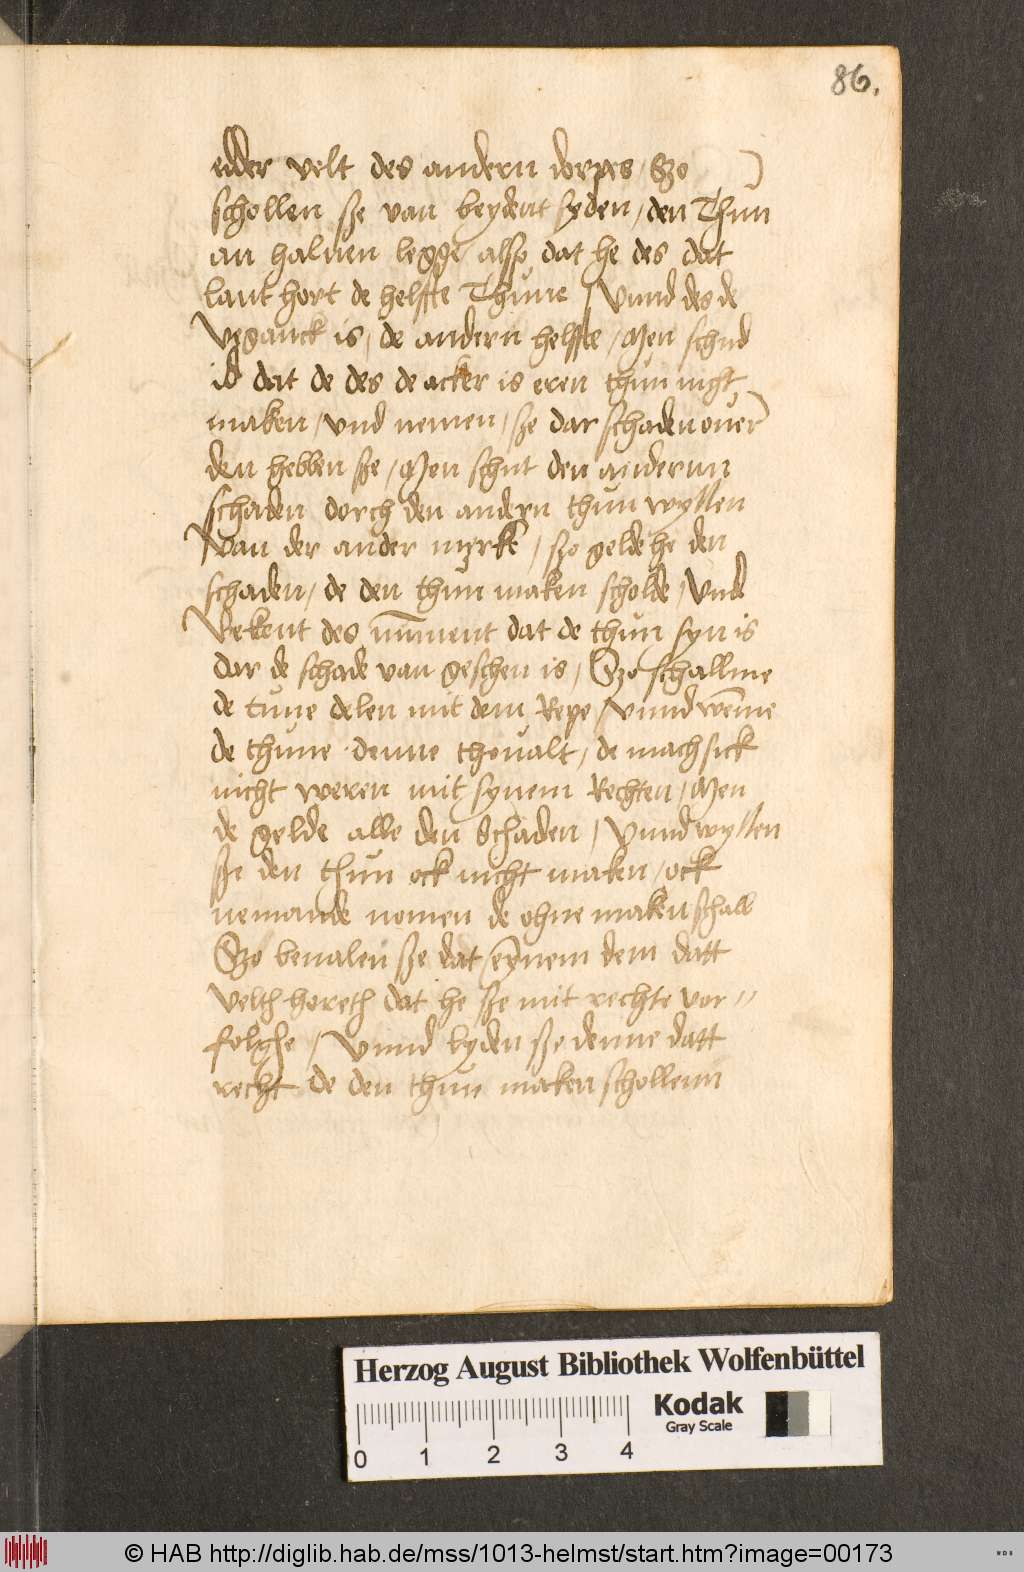 86.
edder velt des andern dorpes / Szo
schollen sze van beydent syden / den Thun
an haluen legge alsso dat he des dat
lant hort de helffte Thune / Vnnd des de
is / de andern helffte / Men schud
id dat de des de acker is eren thun nicht
maken / vnd nemen / sze dar schaden ouer
den hebben sze / Men schut den andernn
schaden dorch den andern thun wyllen
Van der ander / szo gelde he den
schaden / de den thun maken scholde / Vnde
Bekent des nument dat de thun syn is
dar de schade van geschen is / Szo schall me
de tune delen mit dem Repe / Vnnd wenne
de thune denne thoualt / de mach sick
nicht weren mit synem Rechten / Men
de gelde alle den Schaden / Vnnd wyllen
sze den thun ock nicht maken / ock
nemande nomen de ohne maken schall
Szo beualen sze dat eynem dem datt
velth horeth dat he sze mit rechte vor〃
folghe / Vnnd lyden sze denne datt
recht de den thun maken schollenn
Herzog August Bibliothek Wolfenbüttel
Kodak
Gray Scale
0 1 2 3 4
© HAB http://diglib.hab.de/mss/1013-helmst/start.htm?image=00173